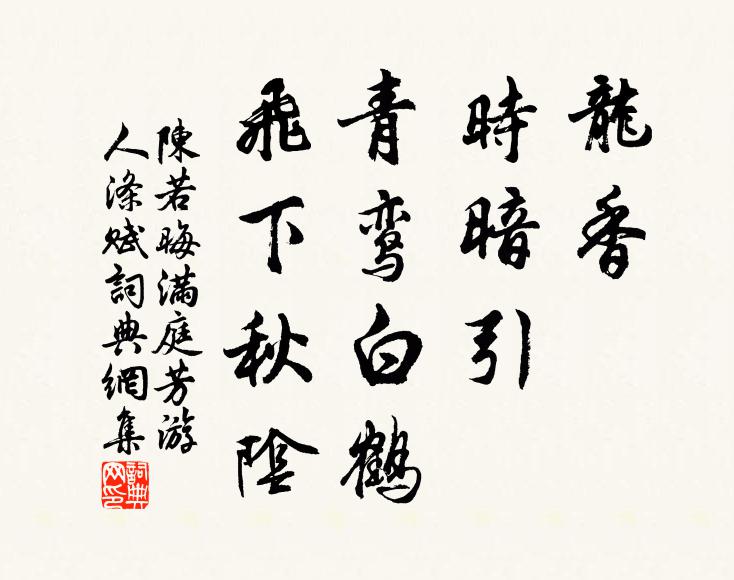 龍香
時暗引
青鸾白鶴
飛下秋陰
陳若晦滿庭芳游
人滌賦詞典網集
詞典
网印